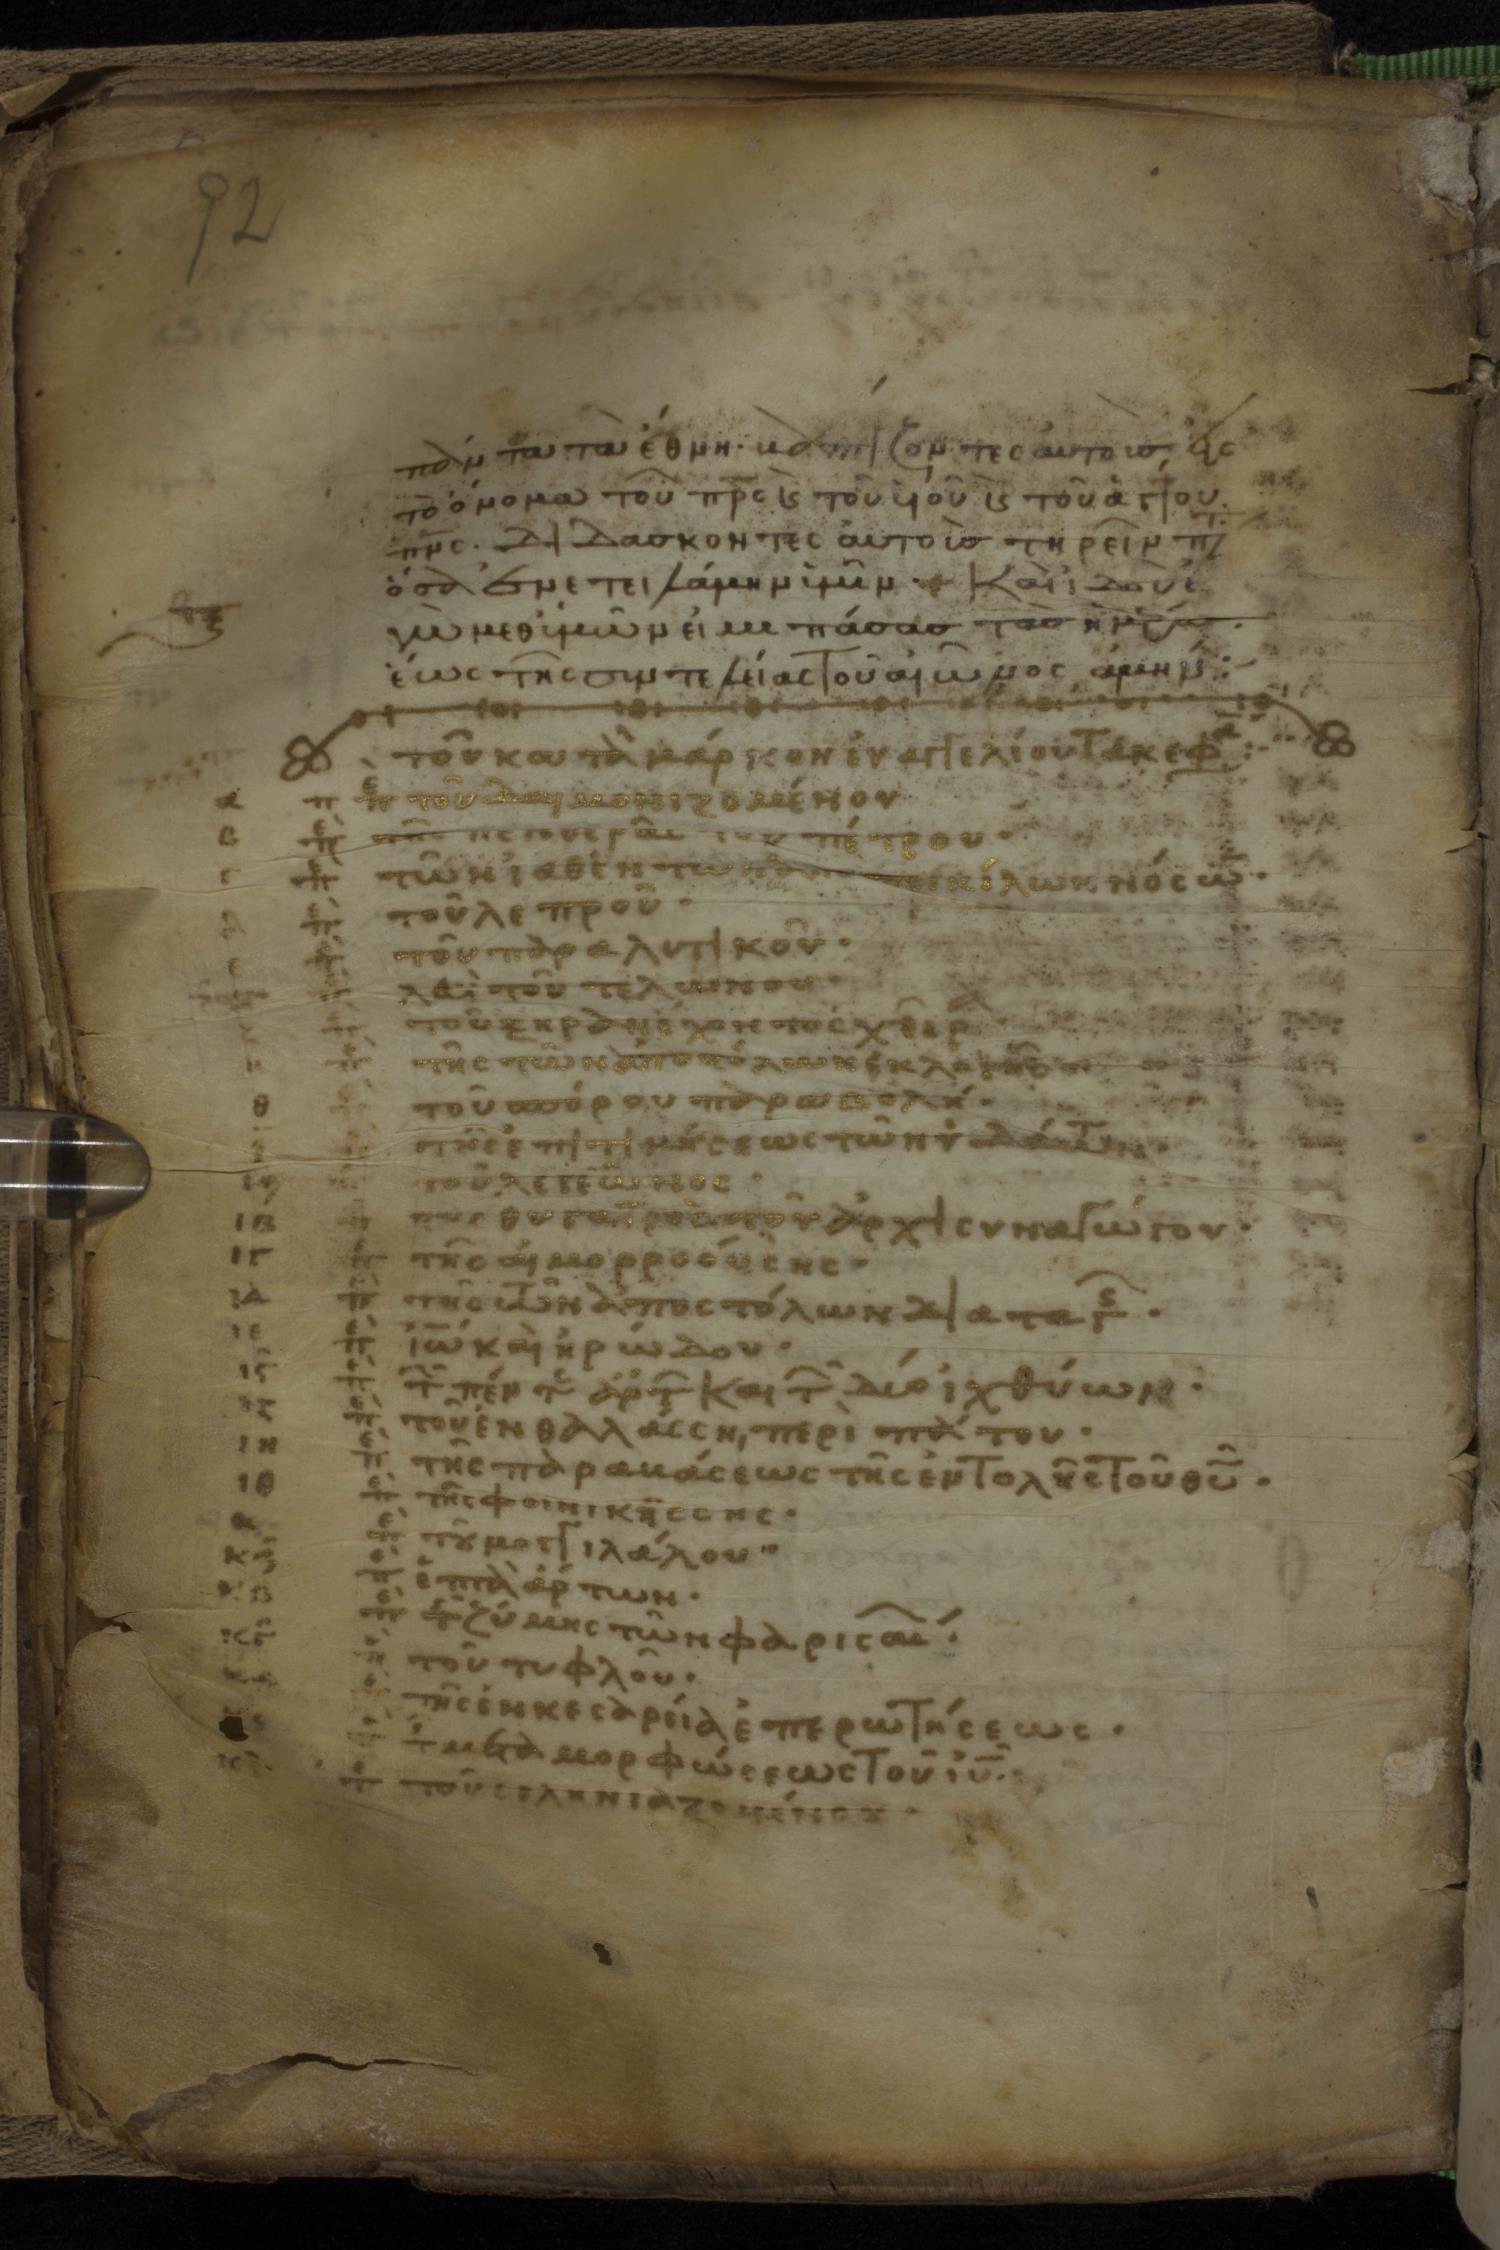 92
πάντα τὰ ἔθνη· βαπτίζοντες αὐτοὺς εἰς
τὸ ὄνομα τοῦ πρς καὶ τοῦ υἱοῦ καὶ τοῦ ἁγίου
πνς· διδάσκοντες αὐτοὺς τηρεῖν π
ὅσα ἐνετειλάμην ὑμῖν· καὶ ἰδοὺ ἐ
γὼ μεθ ὑμῶν εἰμι πάσας τὰς
ἕως τῆς συντελείας τοῦ αἰῶνος ἀμήν:
τοῦ κατὰ μάρκον εὐαγγελίου τὰ κεφ
α πε τοῦ δαιμονιζομένου
β πε τῆς πενθερᾶς τοῦ πέτρου·
γ πε τῶν ἰαθέντων ποικίλων νόσων·
δ πε τοῦ λεπροῦ·
πε τοῦ παραλυτικοῦ·
λευὶ τοῦ τελώνου·
τοῦ ξηρὰν ἔχοντος χεῖρ
πε τῆς τῶν ἀποστόλων ἐκλογῆς
θ τοῦ σπόρου παραβολή·
τῆς ἐπιτιμήσεως τῶν ὑδάτων·
τοῦ λεγεῶνος·
ιβ θυγατρὸς τοῦ ἀρχισυναγώγου·
ιγ πε τῆς αἱμορροούσης·
ιδ πε τῆς τῶν ἀποστόλων διαταγς·
ιε πε ἰῶ καὶ ἡρώδου·
ις πε τ πέντε ἄρτ καὶ τ δύο ἰχθύων·
ιζ πε τοῦ ἐν θαλάσσῃ περιπάτου·
ιη πε τῆς παραβάσεως τῆς ἐντολῆς τοῦ θυ·
ιθ πε τῆς φοινικήσσης·
κ πε τοῦ μογγιλάλου
κα πε ἑπτὰ ἄρτων·
κβ πε τ ζύμης τῶν φαρισαί·
κγ πε τοῦ τυφλοῦ·
πε τῆς ἐν κεσαρείᾳ ἐπερωτήσεως·
πε τ μεταμορφώσεως τοῦ ιυ·
πε τοῦ σεληνιαζομένου·